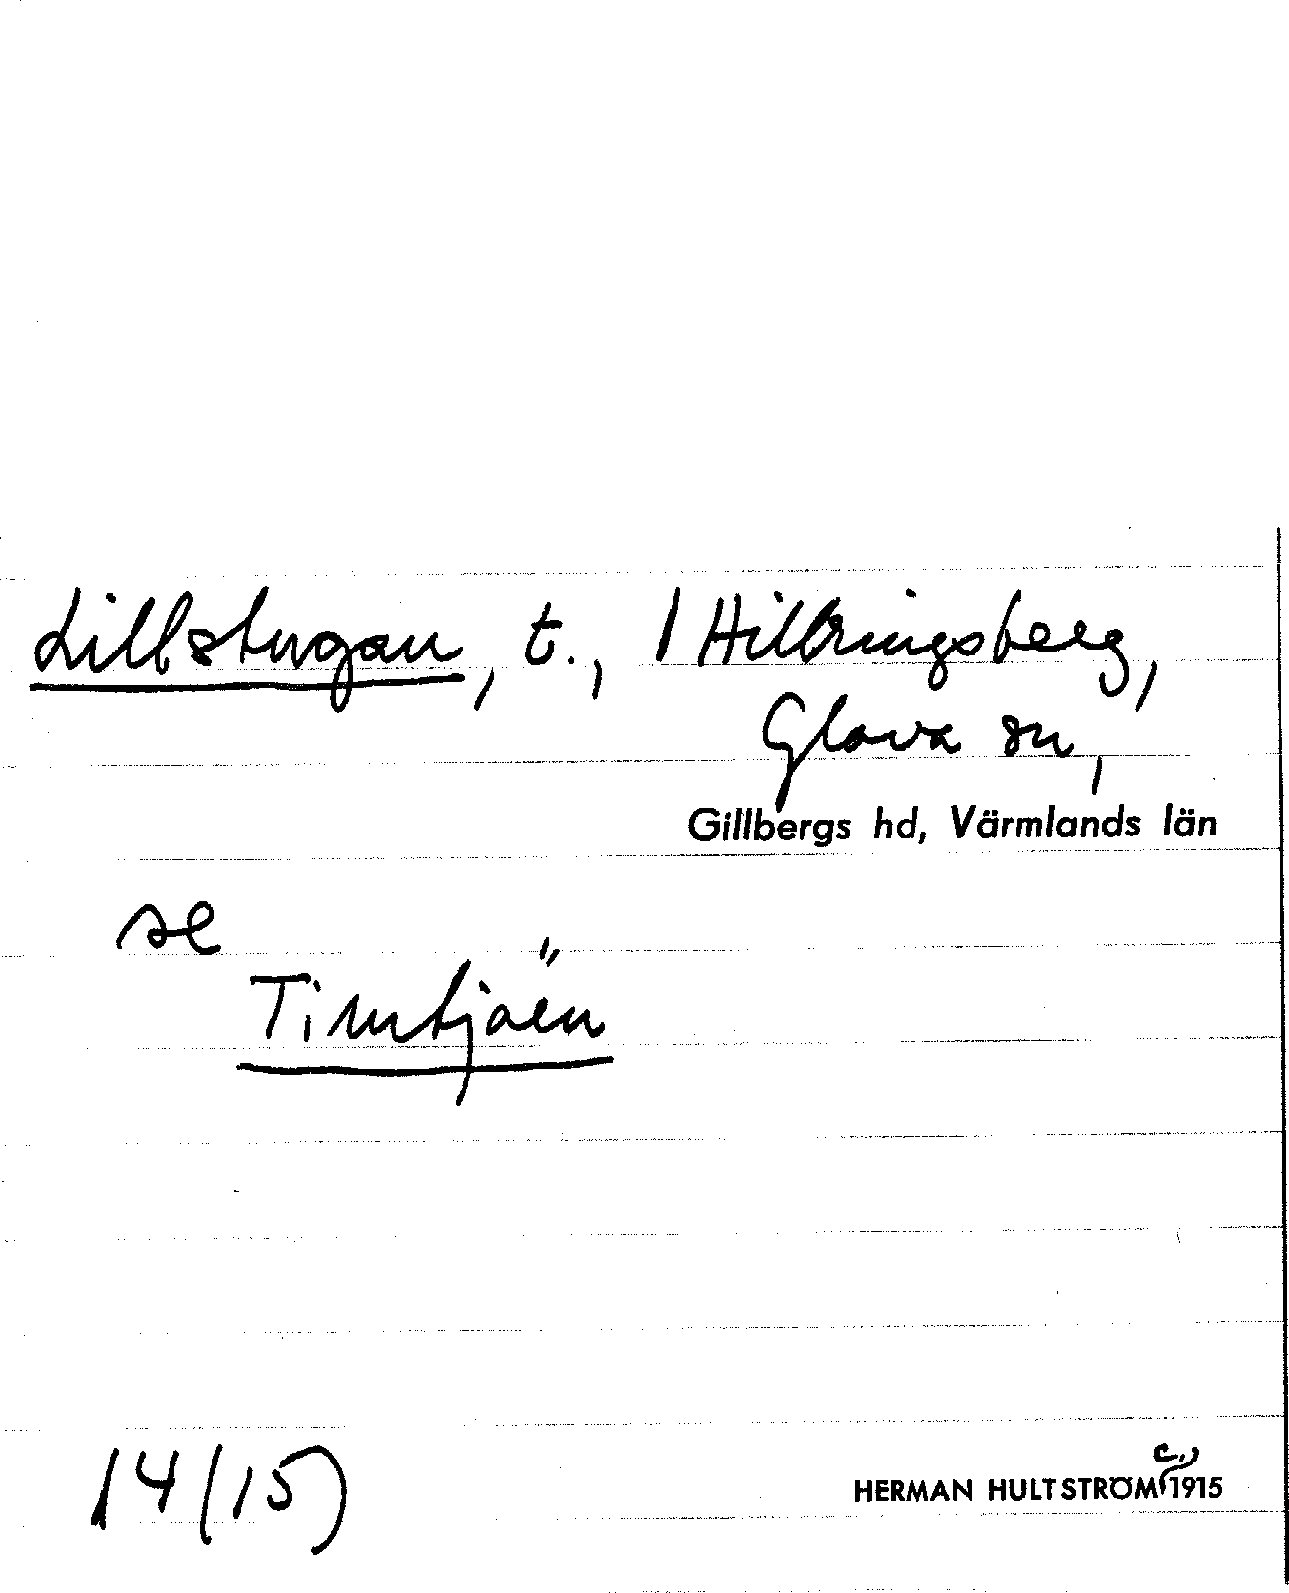 Lillstugan, t., / Hillringsberg,
Glava sn,
Gillbergs hd, Värmlands län
se
Timtjäen
14(15)
HERMAN HULTSTRÖM c., 1915